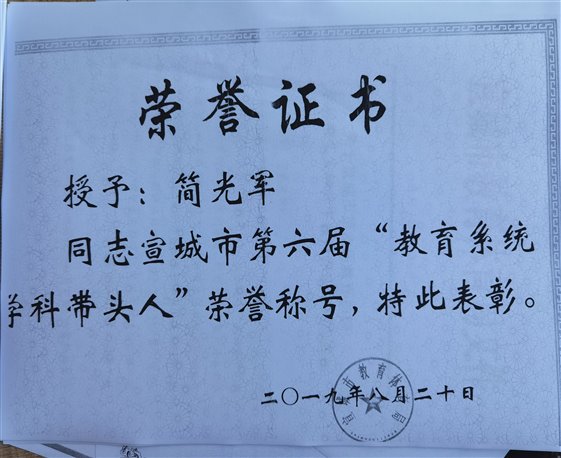 荣誉证书
授予：简光军
同志宣城市第六届“教育系统
学科带头人”荣誉称号，特此表彰。
二〇一九年八月二十日